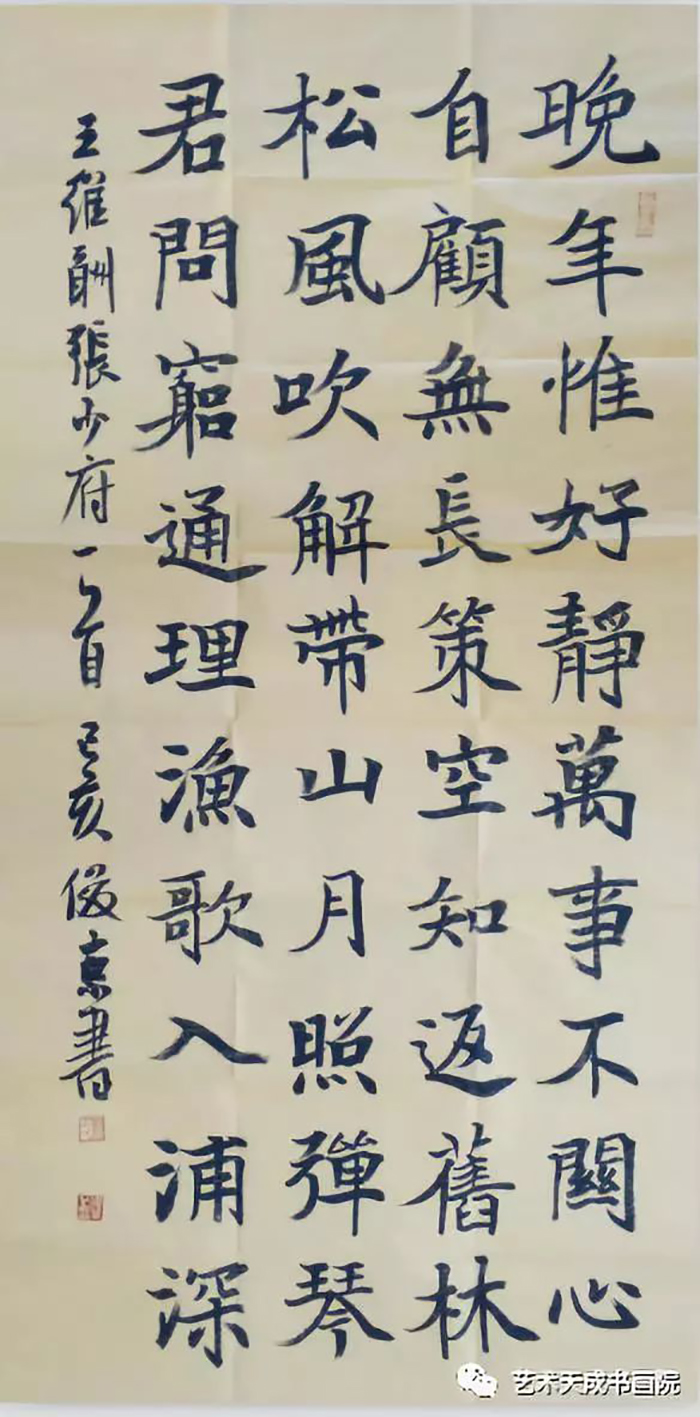 晚年惟好靜萬事不關心
自顧無長策空知返舊林
松風吹解帶山月照彈琴
君問窮通理漁歌入浦深
王維酬張少府一首 己亥 俊京書
艺术天成书画院